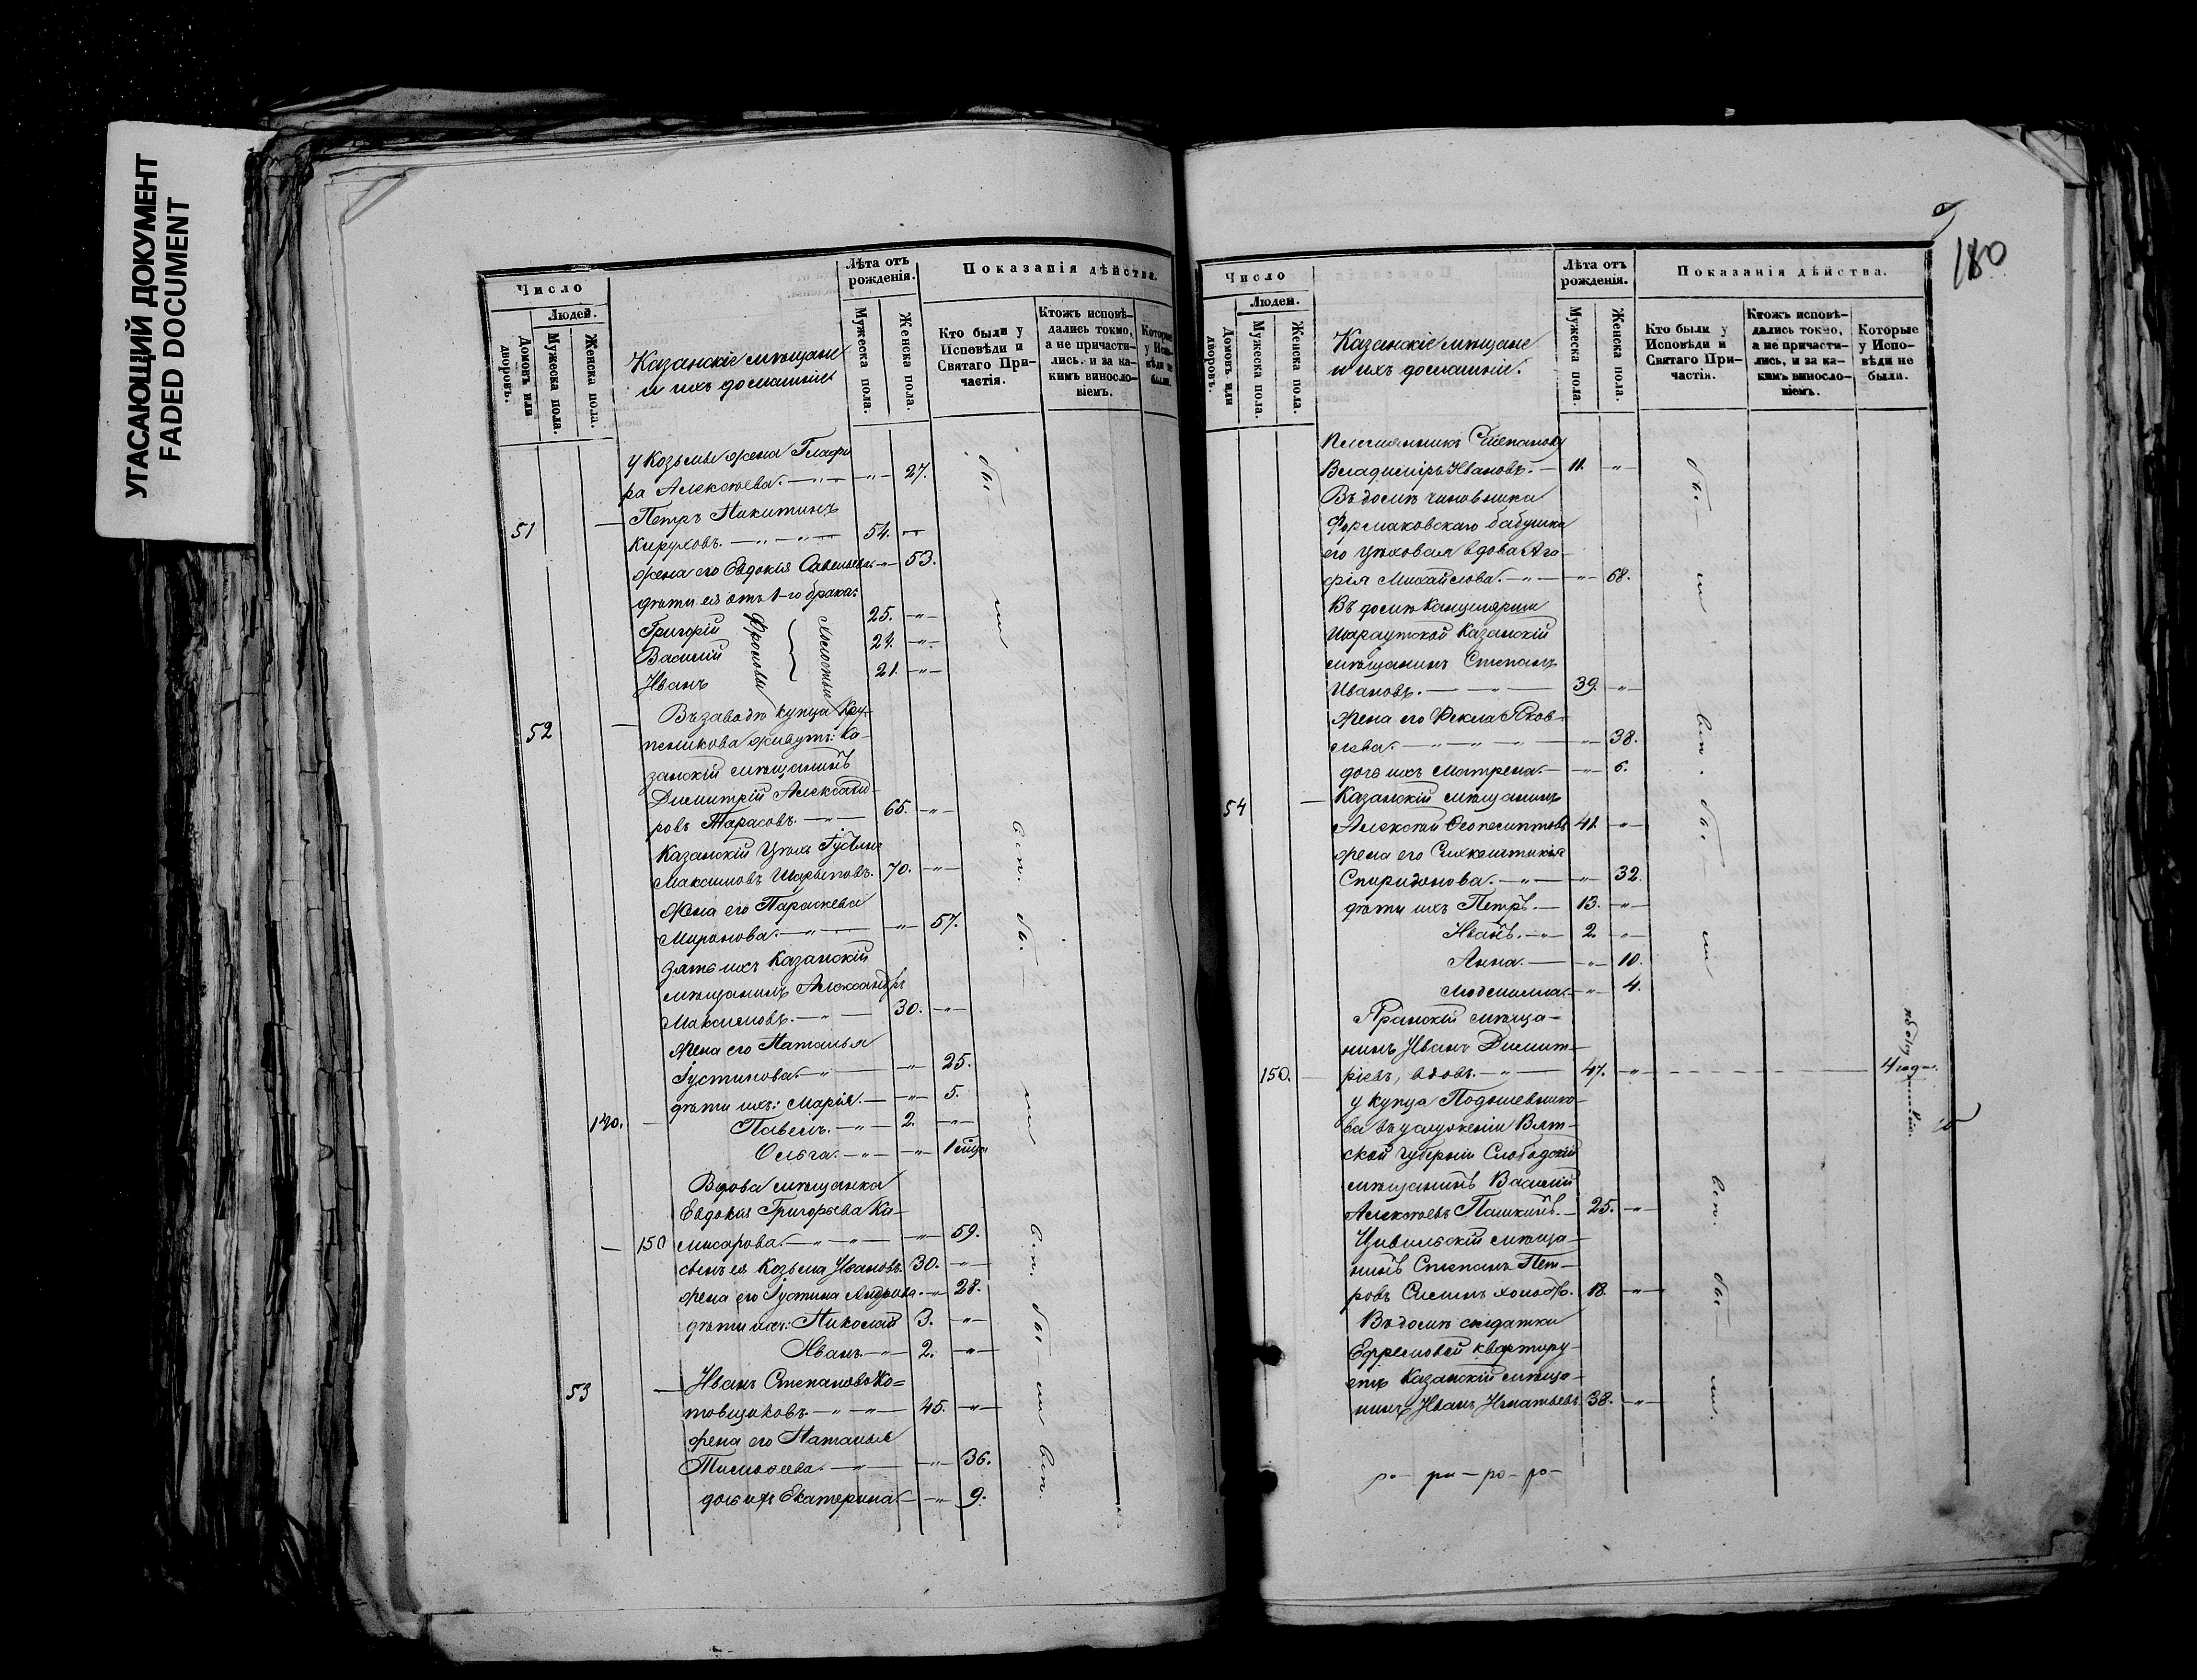 УГАСАЮЩИЙ ДОКУМЕНТ
FADED DOCUMENT
Число
Людей.
Домовъ или дворовъ.
Мужеска пола.
Женска пола.
Казанскіе мѣщане
и ихъ домашніе
Лѣта отъ рожденія.
Мужеска пола.
Женска пола.
Показанія дѣйства.
Кто были у Исповѣди и Святаго Причастія.
Ктожъ исповѣдались токмо, а не причастились, и за какимъ винословіемъ.
Которые у Исповѣди не были.
у Козьмы жена Глафи
ра Алексѣева. — „ — „ — 27.
51 — Петръ Никитинъ
Кируховъ. — „ — „ — 54. „
жена его Евдокія Савельева „ — 53.
дѣти ея отъ 1-го брака:
Григорій 25. — „ —
Василій 24. — „ —
Иванъ 21. — „ —
Фроловы
холосты
52 — Въ заводѣ купца Кру-
пеникова живутъ: Ка-
занскій мѣщанинъ
Димитрій Александ-
ровъ Тарасовъ. — „ — 65. — „ —
Казанскій Цехъ Густинъ
Максимовъ Шарыповъ. 70. — „ —
Жена его Параскева
Миронова. — „ — „ — 57.
Зять ихъ Казанскій
мѣщанинъ Александръ
Максимовъ. — „ — 30. — „ —
Жена его Наталья
Густинова. — „ — „ — 25.
дѣти ихъ: Марія. — „ — 5.
140. — Павелъ. — „ — 2. — „ —
Ольга. — „ — „ — 1
Вдова мѣщанка
Евдокія Григорьева Ка-
— 150 мисарова. — „ — „ — „ — 59.
сынъ ея Козьма Ивановъ. 30. — „ —
жена его Густина Андреева. — „ 28.
дѣти ихъ: Николай 3. — „ —
Иванъ. — „ — 2. — „ —
53 — Иванъ Степановъ Ко=
товщиковъ. — „ — „ — 45. — „ —
жена его Наталья
Тимофеева. — „ — „ — 36.
дочь ихъ Екатерина. — „ — 9.
180
Число
Людей.
Домовъ или дворовъ.
Мужеска пола.
Женска пола.
Казанскіе мѣщане
и ихъ домашніе.
Лѣта отъ рожденія.
Мужеска пола.
Женска пола.
Показанія дѣйства.
Кто были у Исповѣди и Святаго Причастія.
Ктожъ исповѣдались токмо, а не причастились, и за какимъ винословіемъ.
Которые у Исповѣди не были.
племянникъ Степанову
Владиміръ Ивановъ. — 11. — „ —
Въ домѣ чиновника
Фермаковскаго бабушка
его цѣховая вдова Ага-
фія Михайлова. — „ — „ — 68.
Въ домѣ Канцелярши
Шараутской Казанскій
мѣщанинъ Степанъ
Ивановъ. — „ — 39. — „ —
Жена его Фекла Яков-
лева. — „ — „ — „ — „ — 38.
дочь ихъ Матрена. — „ — 6.
54 — Казанскій мѣщанинъ
Алексѣй Феопемптовъ 41. — „ —
жена его Синклитикія
Спиридонова. — „ — „ — 32.
дѣти ихъ Петръ. — 13. — „ —
Иванъ. — „ — 2. — „ —
Анна. — „ — 10.
Людмилла. — „ — 4.
Яранскій мѣща-
нинъ Иванъ Димит-
150. — ріевъ, вдовъ. — „ — 47. — „ — 4 года.
у купца Подошевнико-
ва въ услуженіи Вят-
ской губерніи Слободскій
мѣщанинъ Василій
Алексѣевъ Пашкинъ. — 25. — „ —
Цивильскій мѣща-
нинъ Степанъ Пет-
ровъ Симинъ холостъ. 18. — „ —
Въ домѣ солдатки
Ефремовой квартиру-
етъ Казанскій мѣща-
нинъ Иванъ Игнатьевъ 38. — „ —